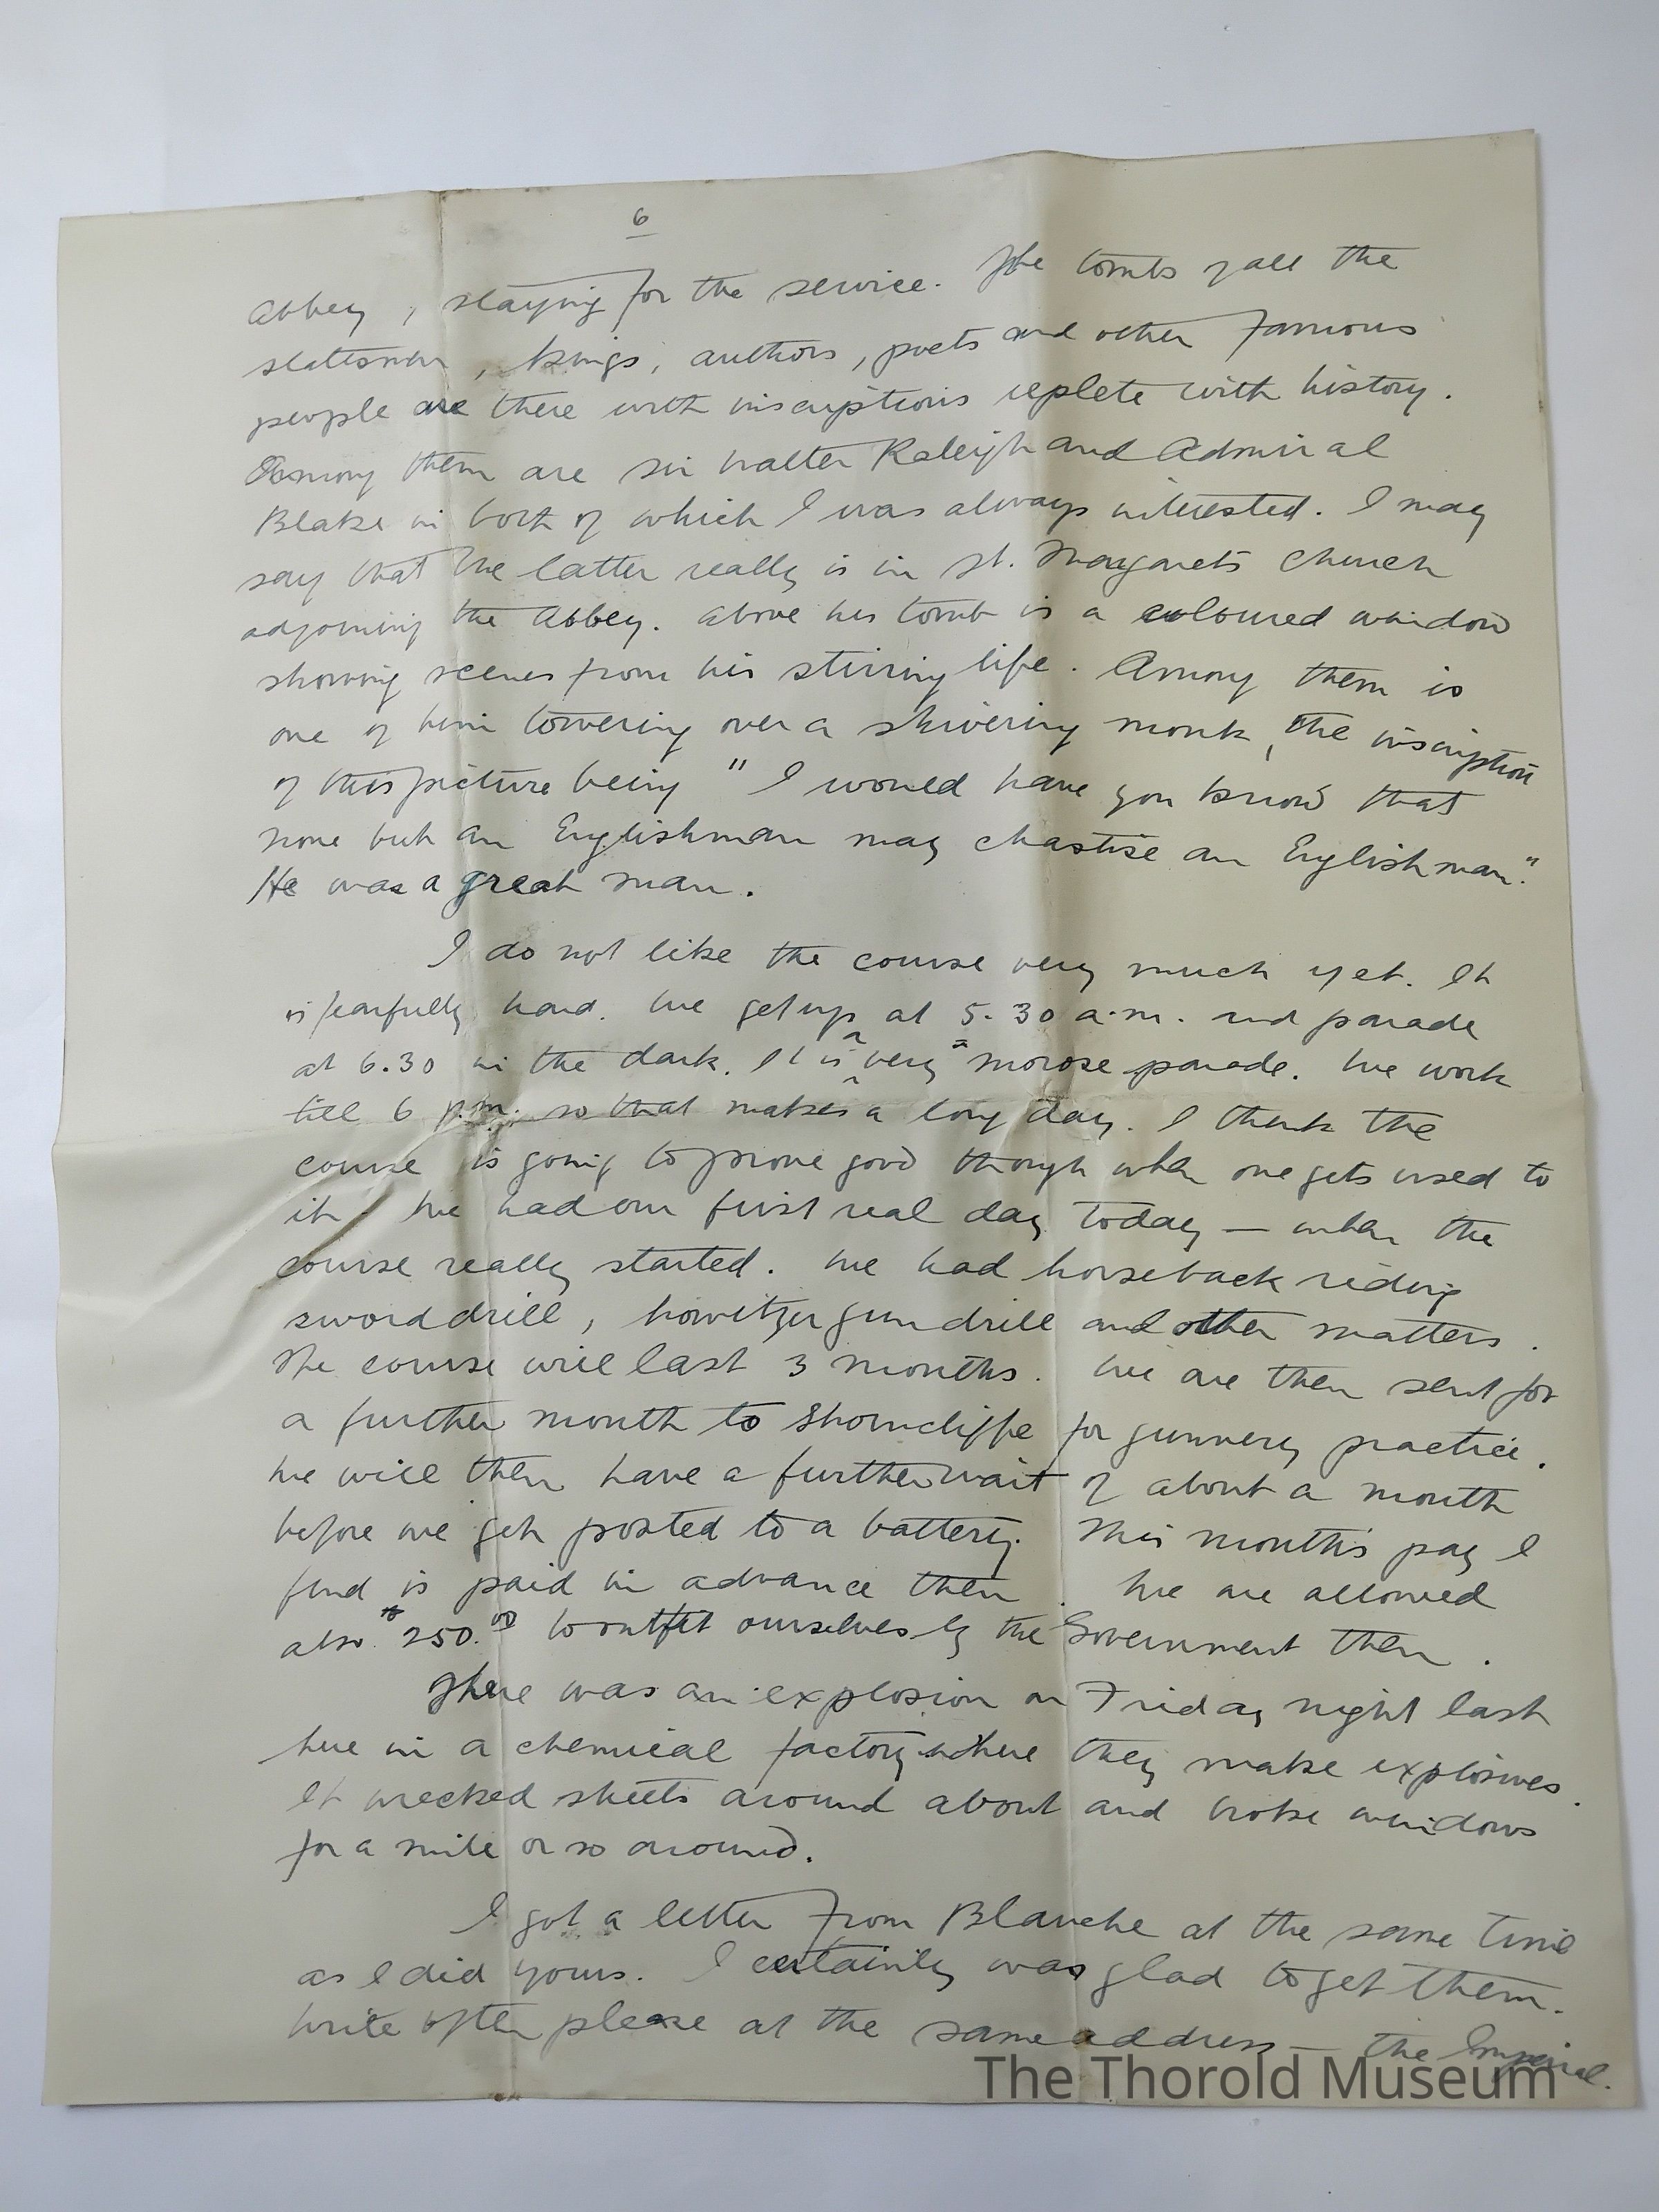 6
Abbey, staying for the service. The tombs of all the
statesmen, kings, authors, poets and other famous
people are there with inscriptions replete with history.
Among them are Sir Walter Raleigh and Admiral
Blake in both of which I was always interested. I may
say that the latter really is in St. Margarets Church
adjoining the Abbey. Above his tomb is a coloured window
showing scenes from his stirring life. Among them is
one of him towering over a shivering monk, the inscription
of this picture being "I would have you know that
none but an Englishman may chastise an Englishman."
He was a great man.
I do not like the course very much yet. It
is fearfully hard. We get up at 5.30 a.m. and parade
at 6.30 in the dark. It is a very morose parade. We work
till 6 p.m. so that makes a long day. I think the
course is going to prove good though when one gets used to
it. We had our first real day today — when the
course really started. We had horseback riding
sword drill, howitzer gun drill and other matters.
The course will last 3 months. We are then sent for
a further month to Shorncliffe for gunnery practice.
We will then have a further wait of about a month
before we get posted to a battery. This month's pay I
find is paid in advance then. We are allowed
also $250.00 to outfit ourselves by the Government then.
There was an explosion on Friday night last
here in a chemical factory where they make explosives.
It wrecked streets around about and broke windows
for a mile or so around.
I got a letter from Blanche at the same time
as I did yours. I certainly was glad to get them.
Write often please at the same address — the Imperial.
The Thorold Museum